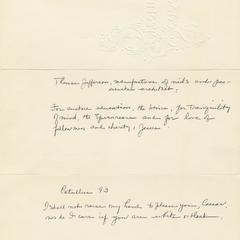 Thomas Jefferson, manufacturer of nails and
architect.
For mature education, the Stoics, for Tranquility
of mind, the Epicureans and for love of
fellowmen and charity, Jesus.
Catullus 93
I shall not raise my hand to please you, Caesar,
nor do I care if you are white or black.